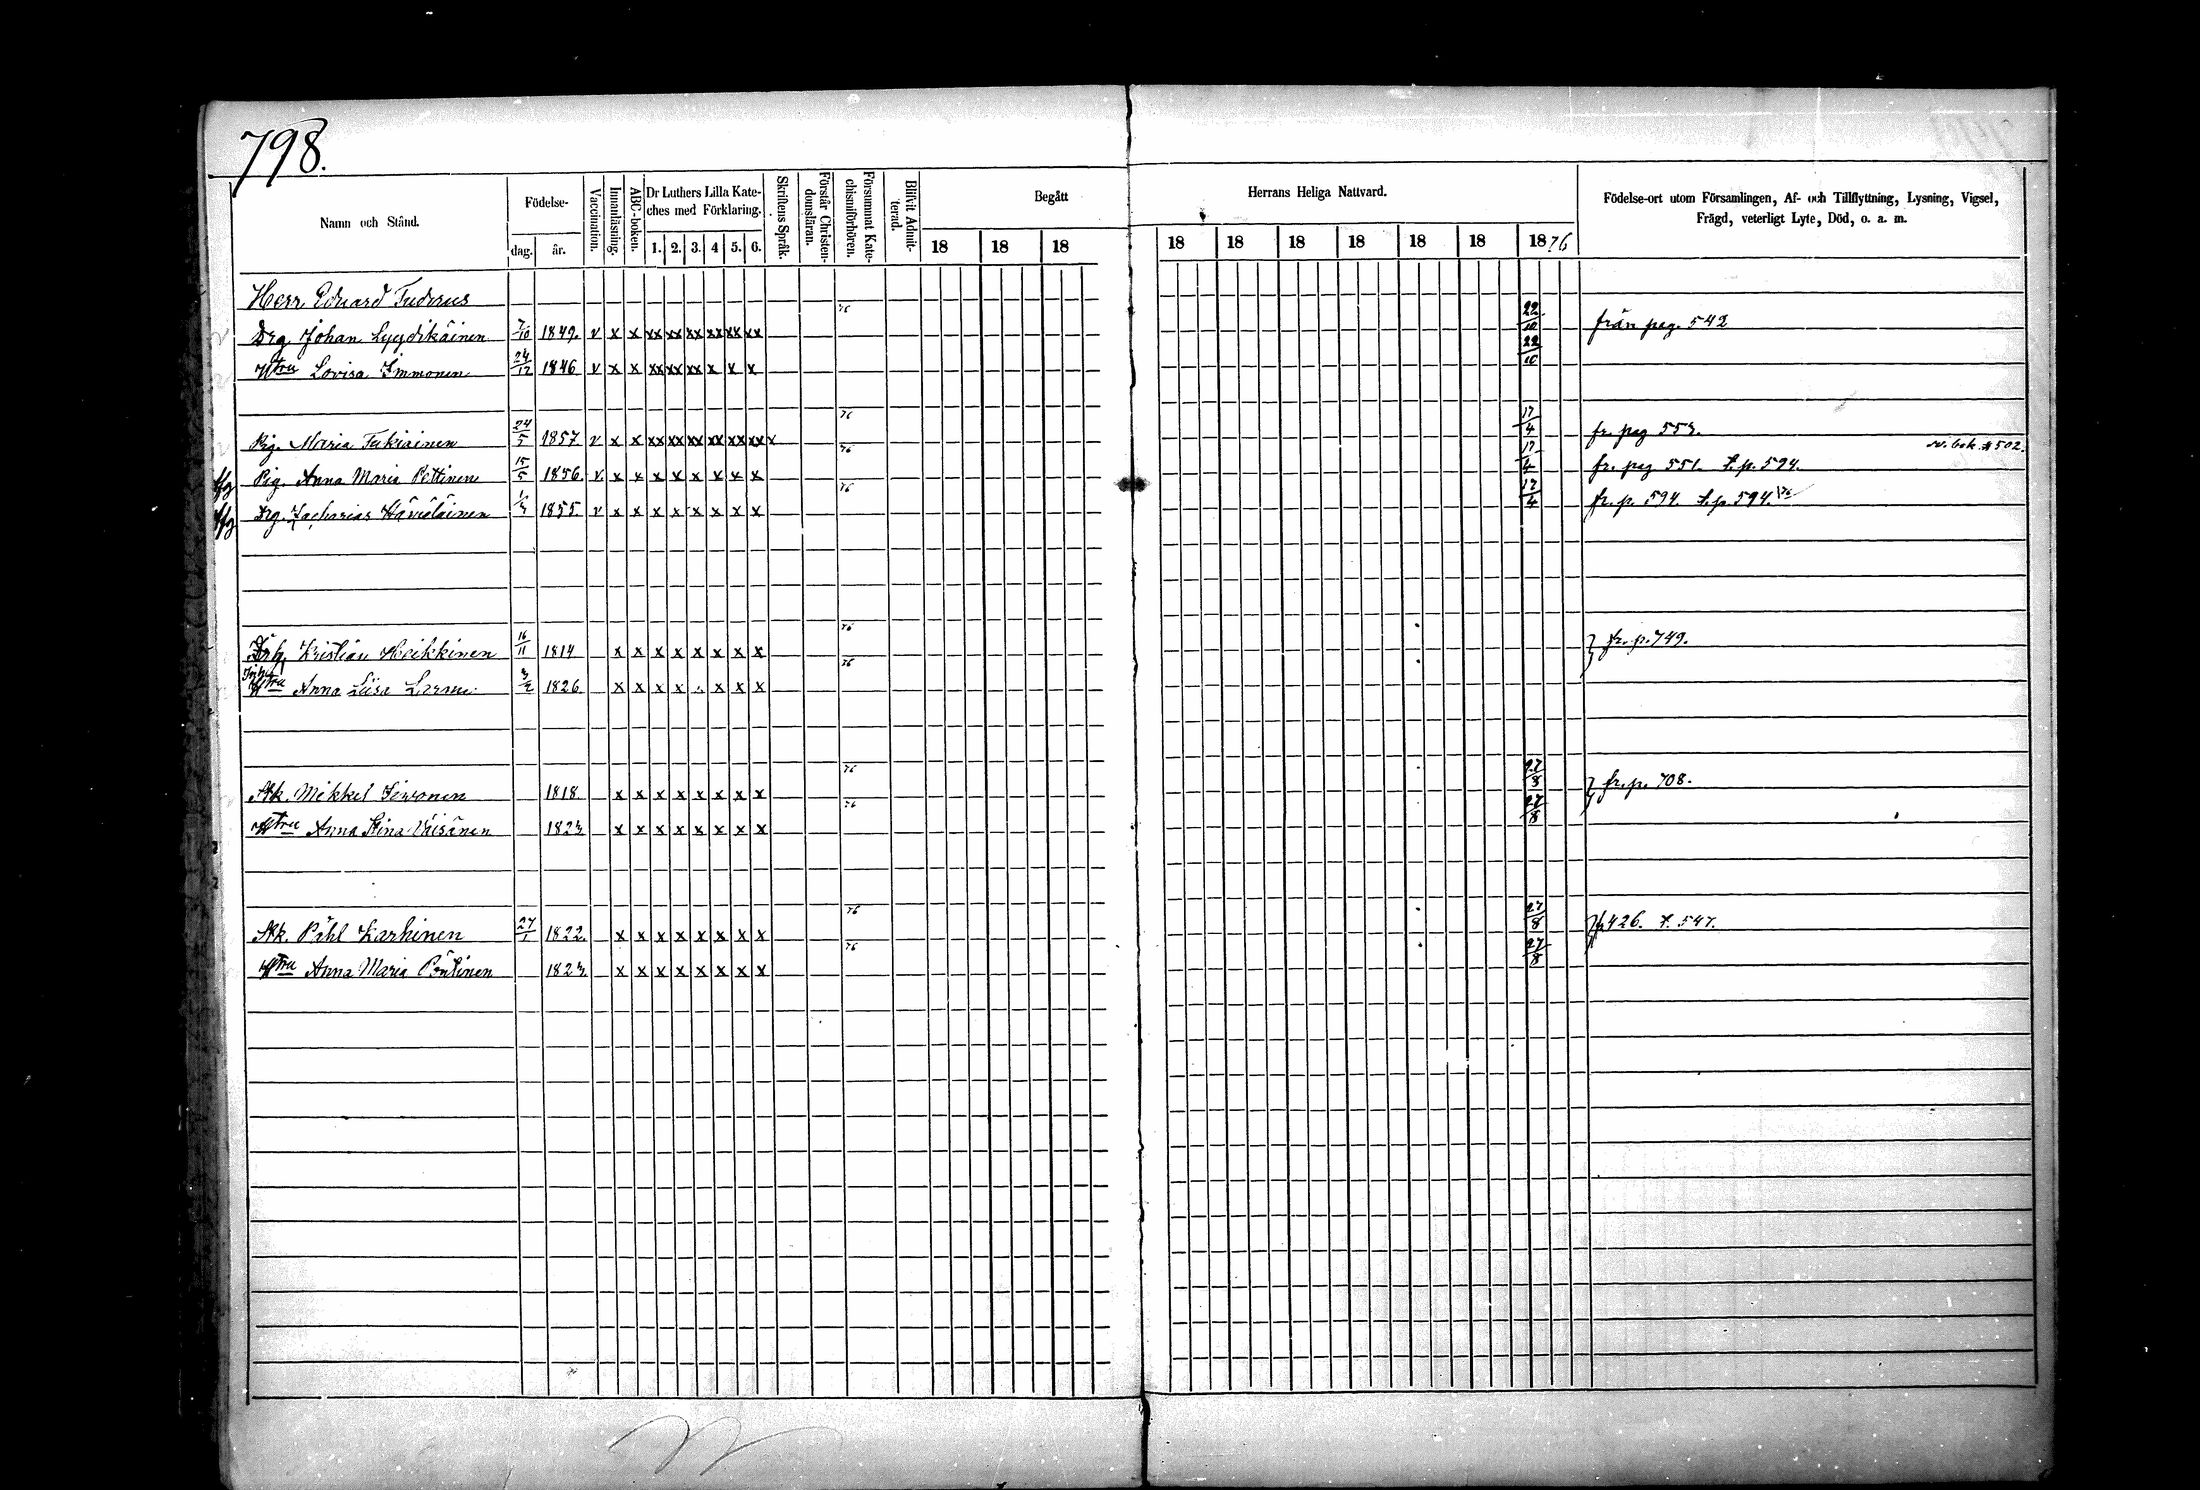 798.
Namn och Stånd.
Födelse-
dag. år.
Vaccination.
Innanläsning.
ABC-boken.
Dr Luthers Lilla Kate-
ches med Förklaring.
1. 2. 3. 4 5. 6.
Skriftens Språk.
Förstår Christen-
domsläran.
Försummat Kate-
chismiförhören.
Blifvit Admit-
terad.
Begått Herrans Heliga Nattvard.
18 18 18 18 18 18 18 18 18 1876
Födelse-ort utom Församlingen, Af- och Tillflyttning, Lysning, Vigsel,
Frägd, veterligt Lyte, Död, o. a. m.
Herr Eduard
Drg. Johan Lyydikäinen 7/10 1849. v x x xx xx xx xx xx xx 76 22/10 från pag. 542
Hstru Lovisa Immonen 24/12 1846 v x x xx xx xx x x x 22/10
Pig. Maria Tukiainen 24/5 1857 v x x xx xx xx xx xx xx x 76 17/4 fr. pag 553.
Pig. Anna Maria Pettinen 15/5 1856. v. x x x x x x x x 76 17/4 fr. pag 551. t. p. 594. bok # 502.
Drg. Zacharias 1855. v x x x x x x x x 76 17/4 fr. p. 594 t. p. 594.
Kristian Heikkinen 16/11 1814 x x x x x x x x 76 fr. p. 749.
Hstru Anna Liisa 1826. x x x x x x x 76
Mikkel 1818. x x x x x x x x 76 27/8 fr. p. 708.
Hstru Anna Stina Väisänen 1823 x x x x x x x x 76 27/8
Påhl Karhinen 27/1 1822. x x x x x x x x 76 27/8 426. t. 547.
Hstru Anna Maria 1823 x x x x x x x x 76 27/8